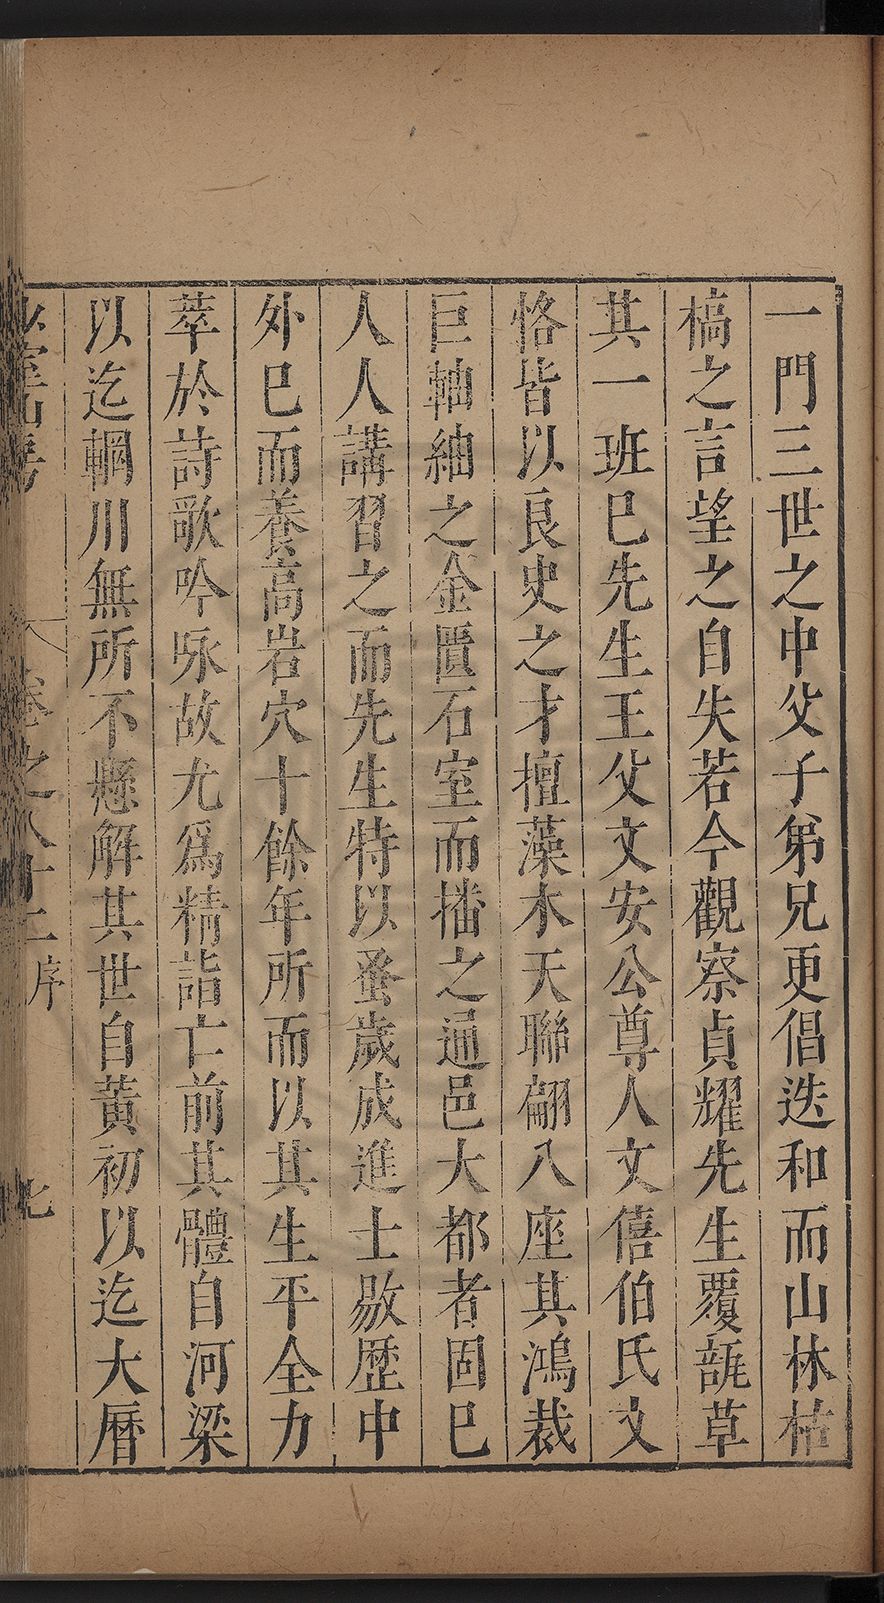 一門三世之中父子弟兄更倡迭和而山林枯
槁之言望之自失若今觀察貞耀先生覆瓿草
其一班巳先生王父文安公尊人文僖伯氏文
恪皆以良史之才擅藻木天聯翩八座其鴻裁
巨軸紬之金匱石室而播之通邑大都者固巳
人人講習之而先生特以蚤歲成進士敭歷中
外巳而養高岩穴十餘年所而以其生平全力
萃於詩歌吟咏故尤爲精詣亡前其體自河梁
以迄輞川無所不懸解其世自黃初以迄大曆
卷之八十二序
七